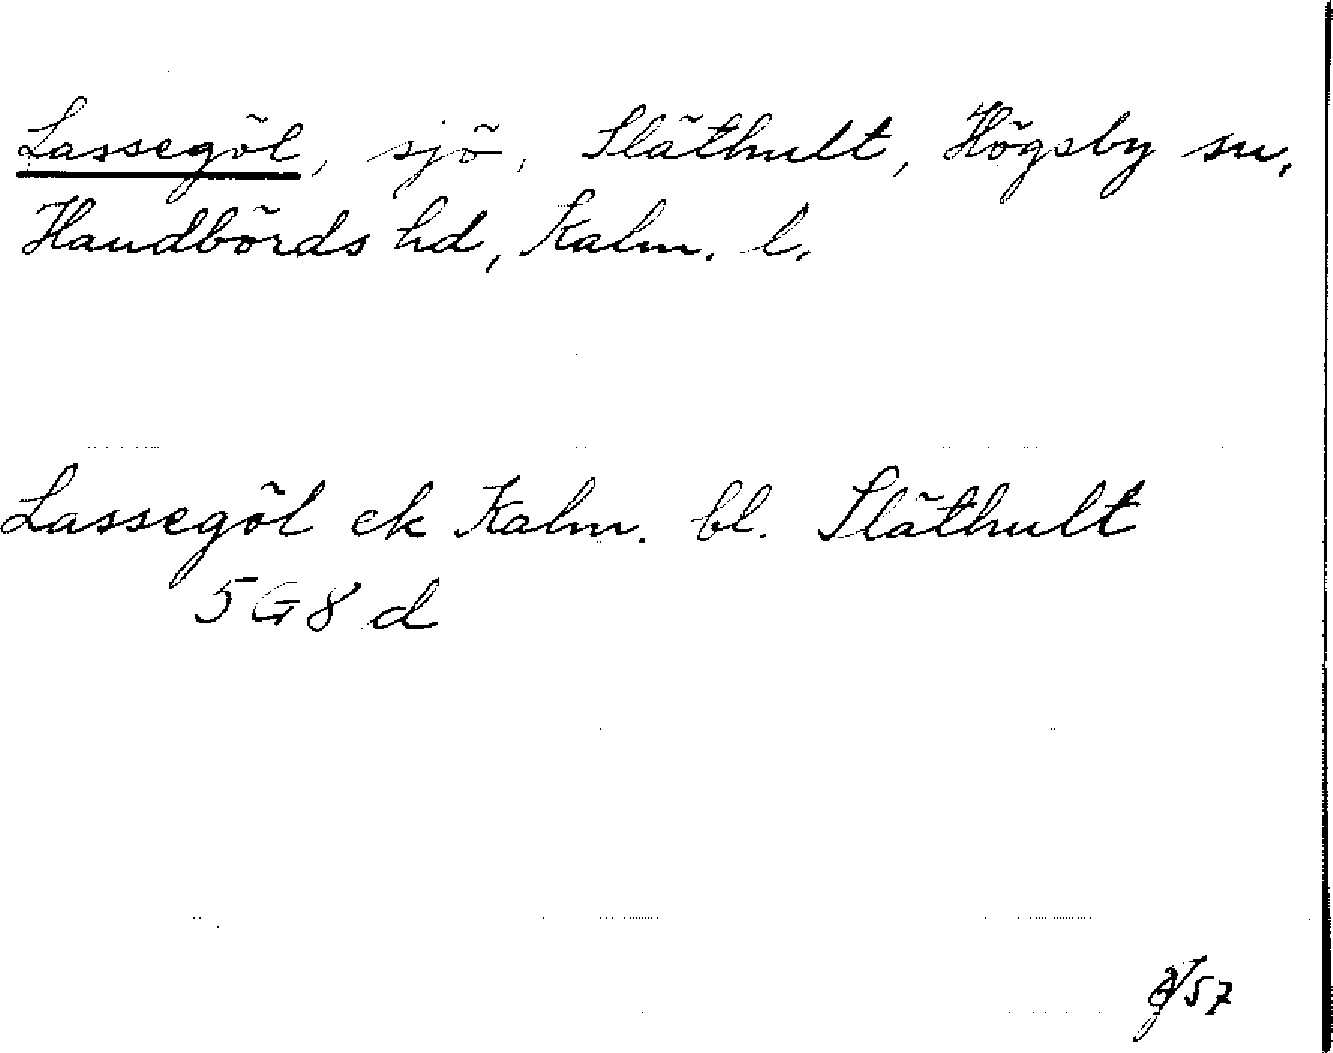 Lassegöl, sjö, Släthult, Högsby sn,
Handbörds hd, Kalm. l.
Lassegöl ek Kalm. bl. Släthult
5G8d
/57